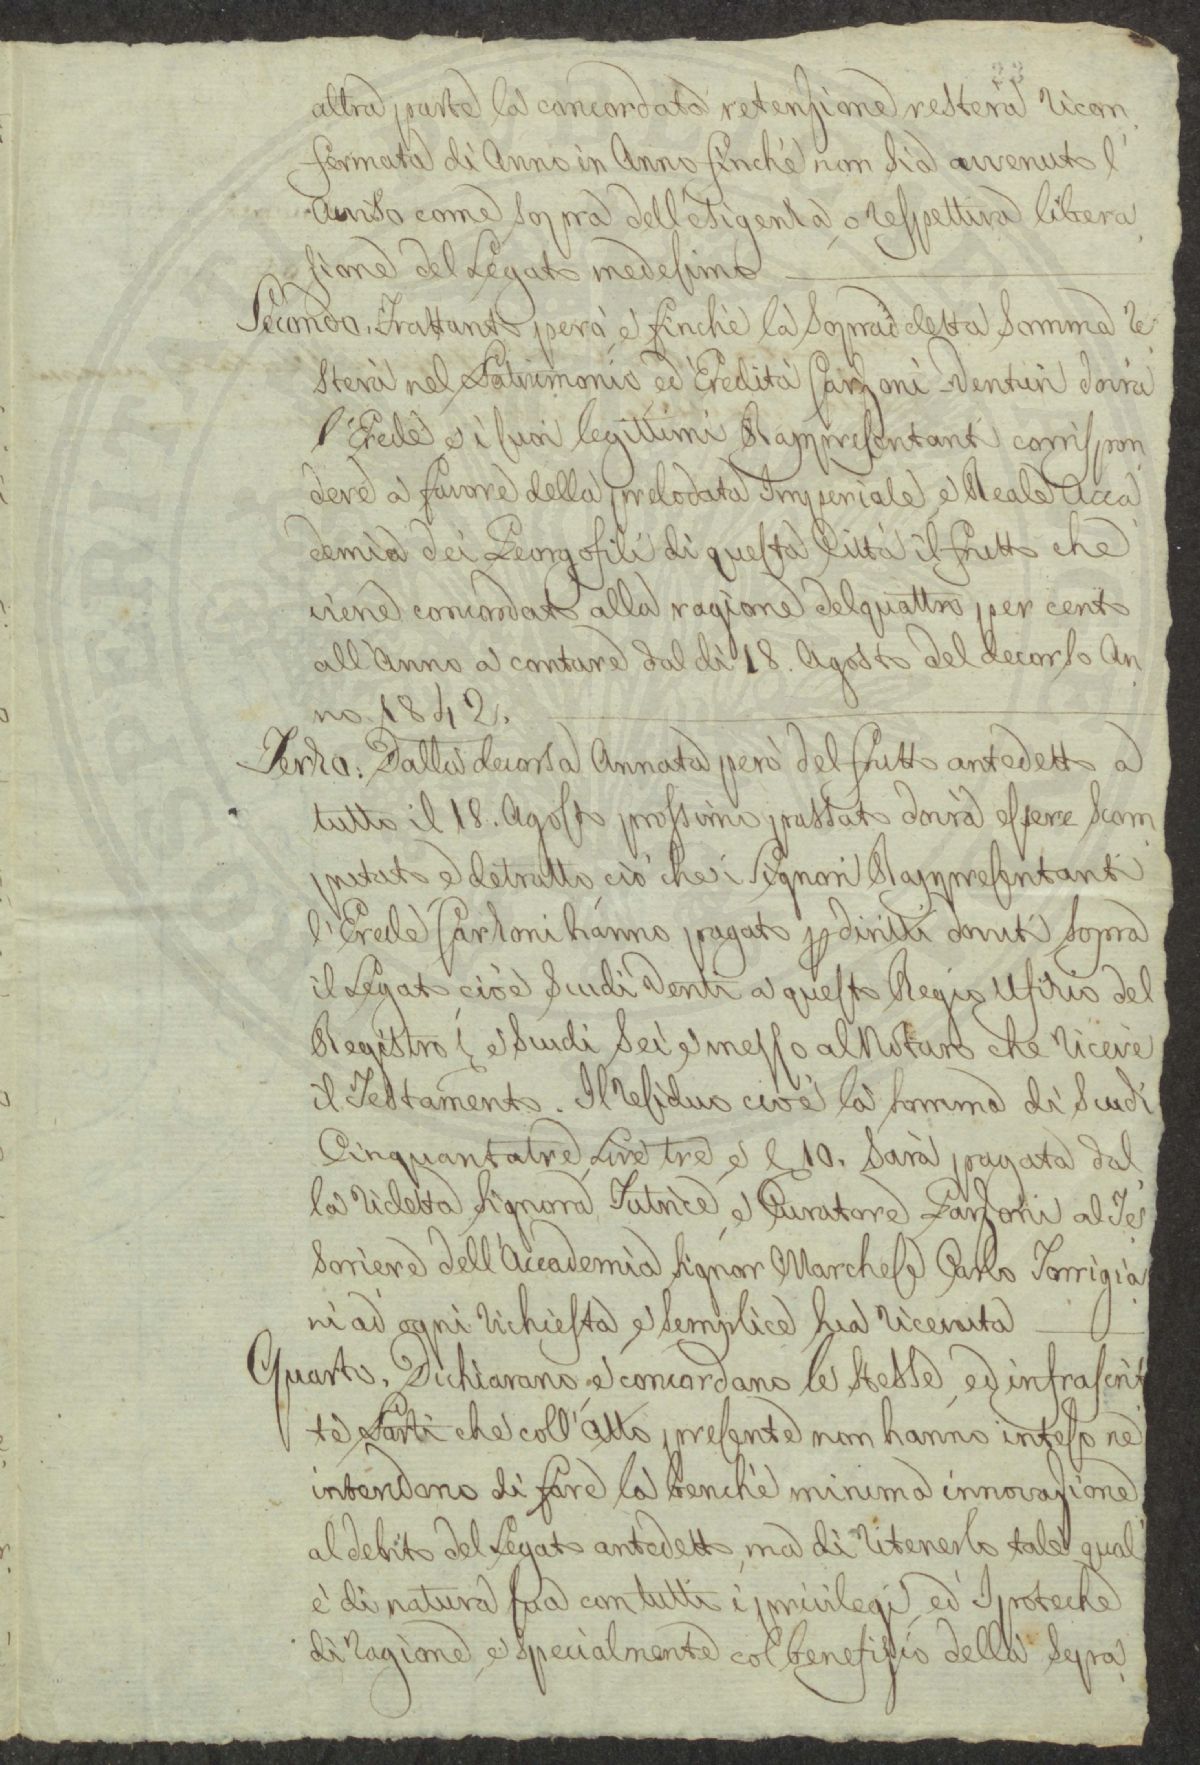 33
altra parte la concordata retenzione resterà ricon,
fermata di Anno in Anno finchè non sia avvenuto l'
Avviso come sopra dell'esigenza o respettiva libera,
zione del Legato medesimo
Secondo. Trattanto però, e finchè la sopraddetta somma re
sterà nel Patrimonio ed Eredità Garzoni Venturi dovrà
l'Erede e i suoi legittimi Rappresentanti corrispon,
dere a favore della prelodata Imperiale, e Reale Acca,
demia dei Georgofili di questa Città il frutto che
viene concordato alla ragione del quattro per cento
all'Anno a contare dal dì 18. Agosto del decorso An,
no 1842.
Terzo. Dalla decorsa Annata però del frutto antedetto a
tutto il 18. Agosto prossimo passato dovrà essere scom
putato, e detratto ciò che i Signori Rappresentanti
l'Erede Garzoni hanno pagato p diritti dovuti sopra
il Legato cioè Scudi Venti a questo Regio Ufizio del
Registro, e Scudi Sei e mezzo al Notaro che ricevè
il Testamento. Il residuo cioè la somma di Scudi
Cinquantatre, Lire tre e 10. sarà pagata dal
la ridetta Signora Tutrice, e Curatore Garzoni al Te,
soriere dell'Accademia Signor Marchese Carlo Torrigia
ni ad ogni richiesta e semplice sua ricevuta
Quarto. Dichiarano, e concordano le stesse, ed infrascrit
te Parti che coll'atto presente non hanno inteso nè
intendono di fare la benchè minima innovazione
al debito del Legato antedetto, ma di ritenerlo tale qual'
è di natura sua con tutti i privilegi, ed Ipoteche
di ragione, e specialmente col benefizio della Sepra,